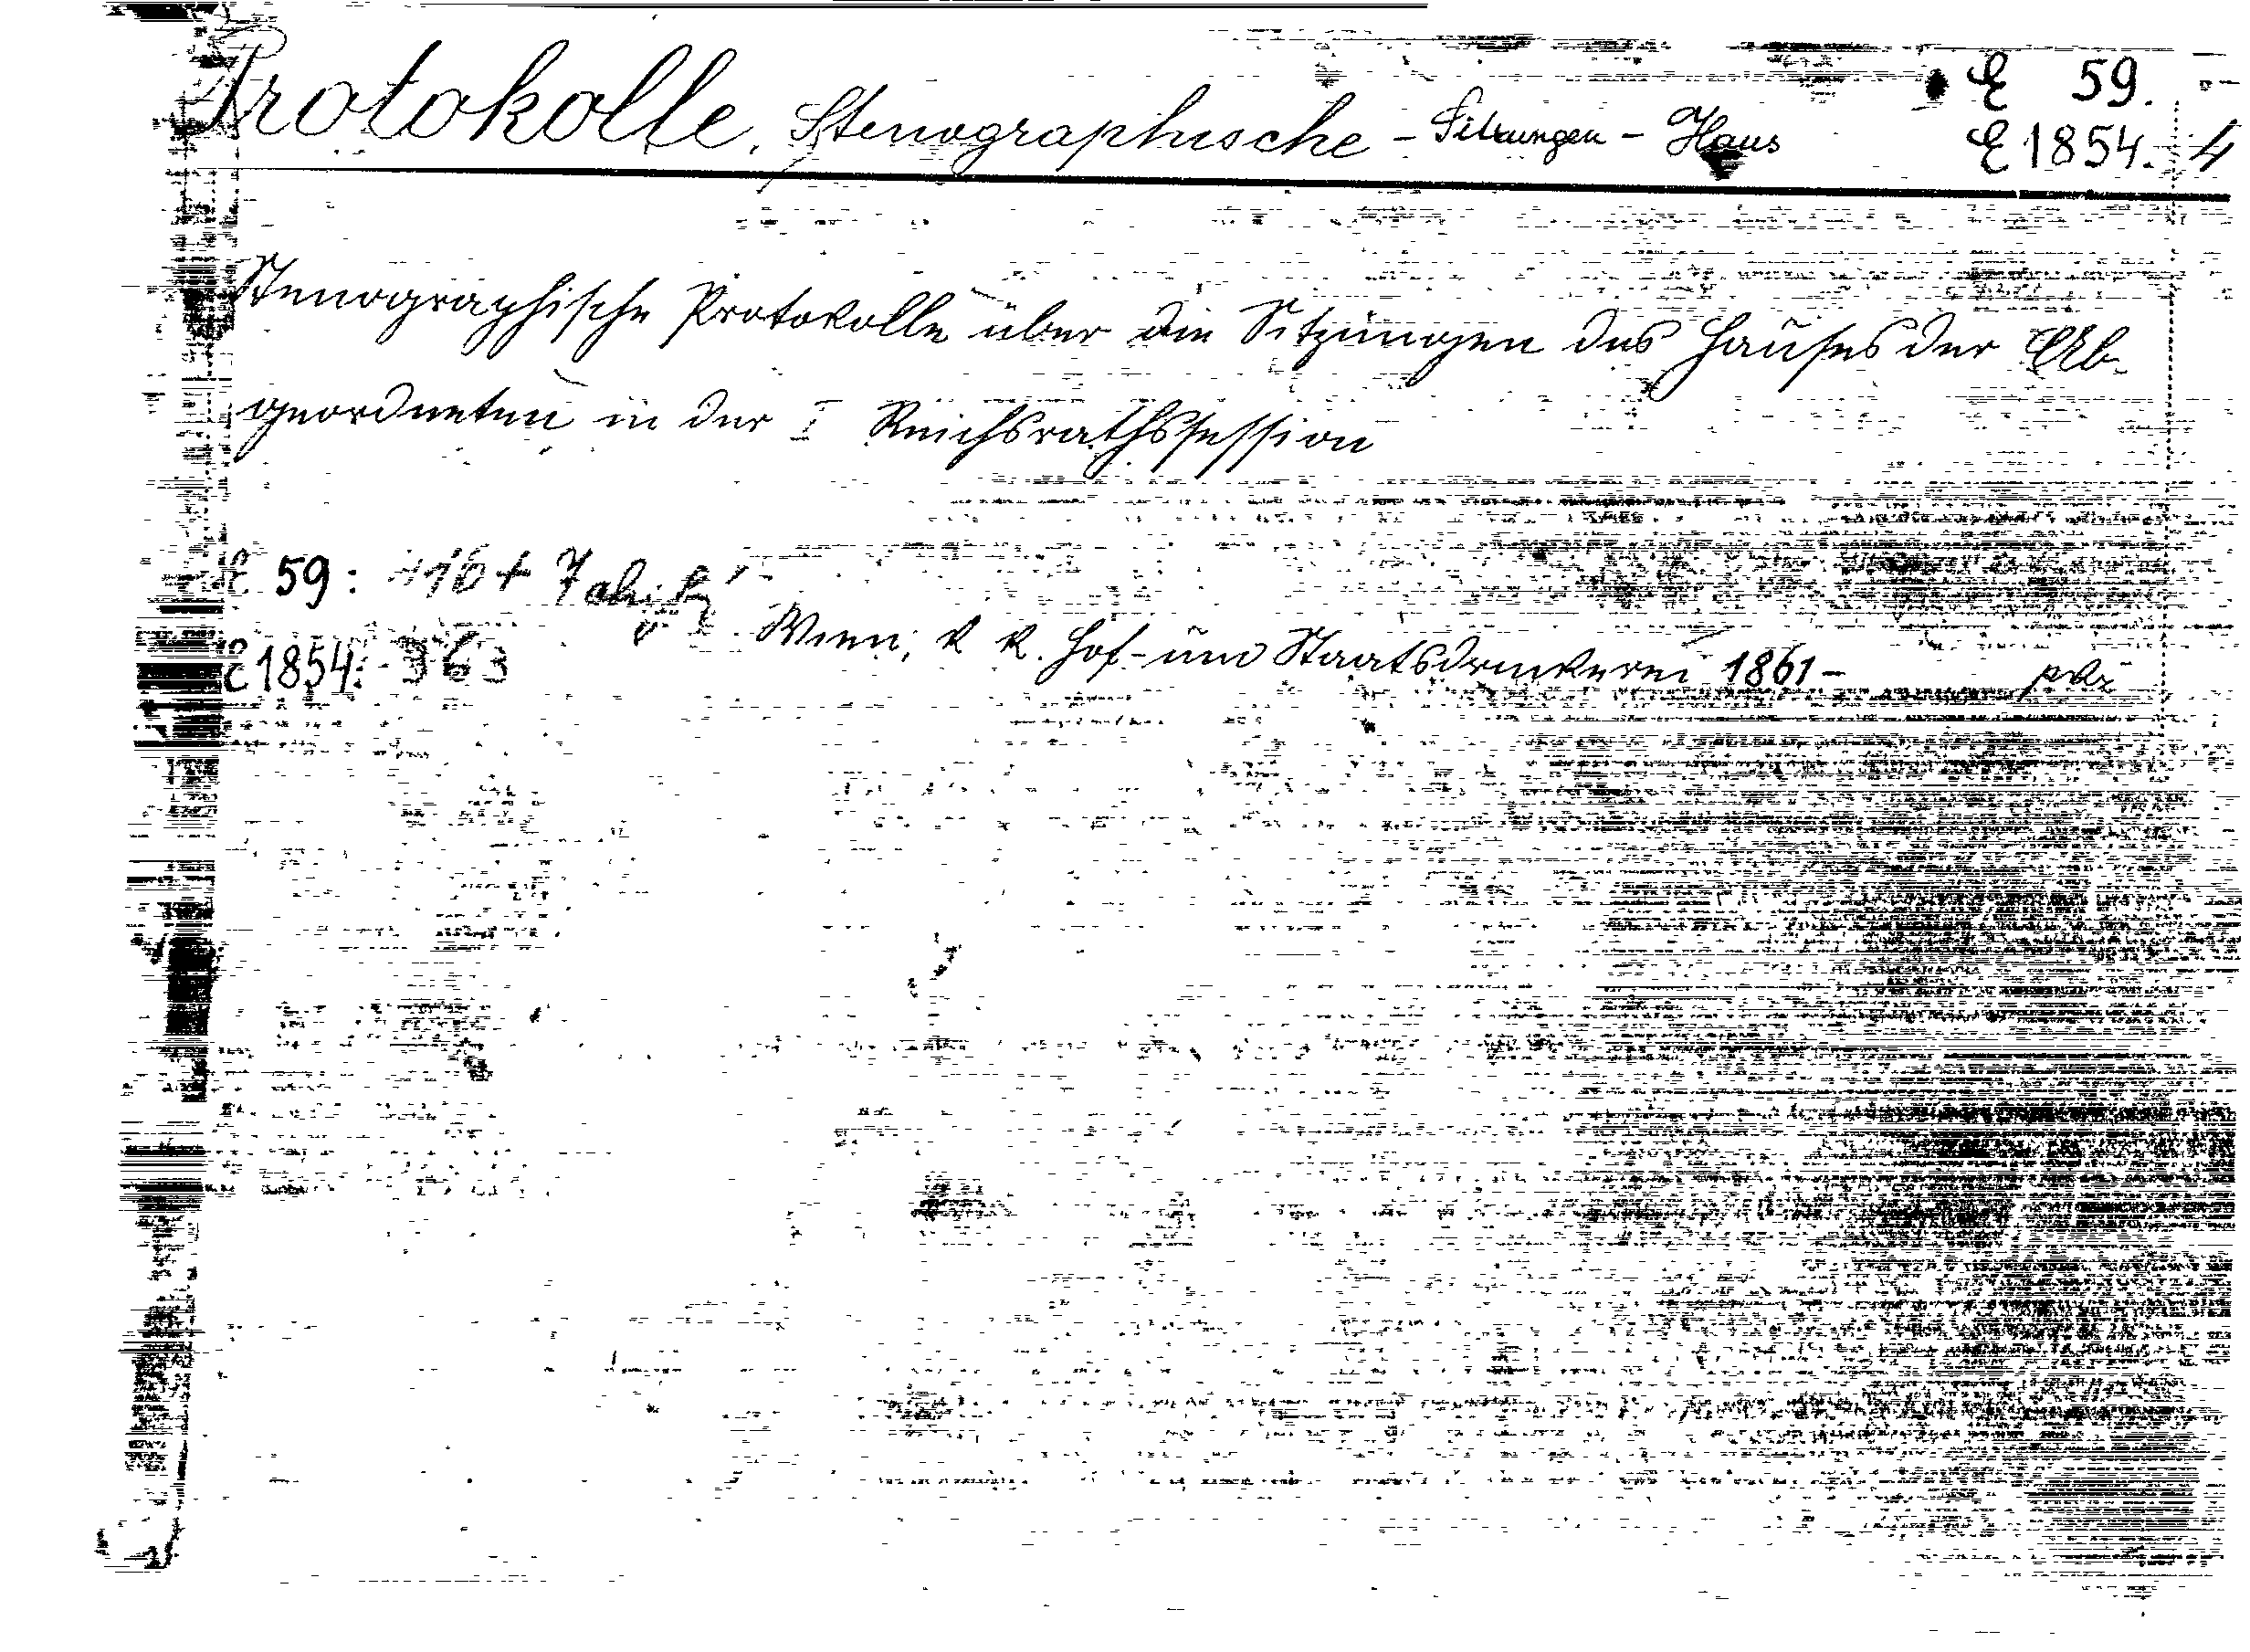 Protokolle, Stenographische - Sitzungen - Haus E 59.
E 1854. 4
Stenographische Protokolle über die Sitzungen des Hauses der Ab-
geordneten in der I Reichsrathssession
E 59:
E 1854: 363
Wien, k. k. Hof- und Staatsdruckerei 1861-